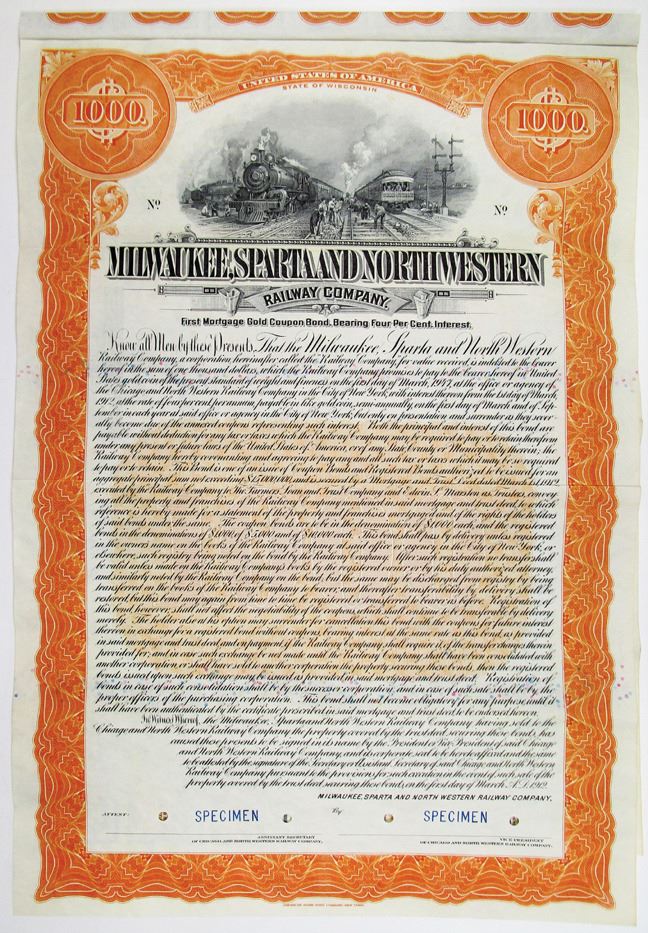 UNITED STATES OF AMERICA
STATE OF WISCONSIN
1000. 1000.
Nº Nº
MILWAUKEE, SPARTA AND NORTH WESTERN
RAILWAY COMPANY.
First Mortgage Gold Coupon Bond, Bearing Four Per Cent. Interest.
Know all Men by these Presents, That the Milwaukee, Sparta and North Western
Railway Company, a corporation, hereinafter called the Railway Company, for value received, is indebted to the bearer
hereof in the sum of one thousand dollars, which the Railway Company promises to pay to the bearer hereof in United
States gold coin of the present standard of weight and fineness, on the first day of March, 1947, at the office or agency of
the Chicago and North Western Railway Company in the City of New York, with interest thereon from the 1st day of March,
1912, at the rate of four per cent per annum, payable in like gold coin, semi-annually, on the first day of March and of Sep-
tember in each year at said office or agency in the City of New York, but only on presentation and surrender as they sever-
ally become due of the annexed coupons representing such interest. Both the principal and interest of this bond are
payable without deduction for any tax or taxes which the Railway Company may be required to pay or to retain therefrom
under any present or future laws of the United States of America, or of any State, County or Municipality therein; the
Railway Company hereby covenanting and agreeing to pay any and all such tax or taxes which it may be so required
to pay or to retain. This Bond is one of an issue of Coupon Bonds and Registered Bonds authorized to be issued for an
aggregate principal sum not exceeding $15,000,000, and is secured by a Mortgage and Trust Deed dated March 1st, 1912,
executed by the Railway Company to The Farmers' Loan and Trust Company and Edwin S. Marston as Trustees, convey-
ing all the property and franchises of the Railway Company mentioned in said mortgage and trust deed, to which
reference is hereby made for a statement of the property and franchises mortgaged and of the rights of the holders
of said bonds under the same. The coupon bonds are to be in the denomination of $1,000 each, and the registered
bonds in the denominations of $1,000 of $5,000 and of $10,000 each. This bond shall pass by delivery unless registered
in the owner's name on the books of the Railway Company at said office or agency in the City of New York, or
elsewhere, such registry being noted on the bond by the Railway Company. After such registration no transfer shall
be valid unless made on the Company's books by the registered owner or by his duly authorized attorney,
and similarly noted by the Railway Company on the bond, but the same may be discharged from registry by being
transferred on the books of the Railway Company to bearer, and thereafter transferability by delivery shall be
restored, but this bond may again from time to time be registered or transferred to bearer as before. Registration of
this bond, however, shall not affect the negotiability of the coupons, which shall continue to be transferable by delivery
merely. The holder also at his option may surrender for cancellation this bond with the coupons for future interest
thereon in exchange for a registered bond without coupons, bearing interest at the same rate as this bond, as provided
in said mortgage and trust deed, and on payment, if the Railway Company shall require it, of the transfer charges therein
provided for; and in case such exchange be not made until the Railway Company shall have been consolidated with
another corporation, or shall have sold to another corporation the property securing these bonds then the registered
bonds issued upon such exchange may be issued as provided in said mortgage and trust deed. Registration of
bonds in case of such consolidation shall be by the successor corporation, and in case of such sale shall be by the
proper officers of the purchasing corporation. This bond shall not become obligatory for any purpose until it
shall have been authenticated by the certificate prescribed in said mortgage and trust deed to be endorsed hereon.
In Witness Whereof, the Milwaukee, Sparta and North Western Railway Company having sold to the
Chicago and North Western Railway Company the property covered by the trust deed securing these bonds, has
caused these presents to be signed in its name by the President or Vice President of said Chicago
and North Western Railway Company, and its corporate seal to be hereto affixed, and the same
to be attested by the signature of the Secretary or Assistant Secretary of said Chicago and North Western
Railway Company pursuant to the provisions for such execution in the event of such sale of the
property covered by the trust deed securing these bonds, on the first day of March, A.D. 1912.
MILWAUKEE, SPARTA AND NORTH WESTERN RAILWAY COMPANY,
ATTEST: SPECIMEN By SPECIMEN
ASSISTANT SECRETARY VICE PRESIDENT
OF CHICAGO AND NORTH WESTERN RAILWAY COMPANY. OF CHICAGO AND NORTH WESTERN RAILWAY COMPANY.
AMERICAN BANK NOTE COMPANY, NEW YORK.